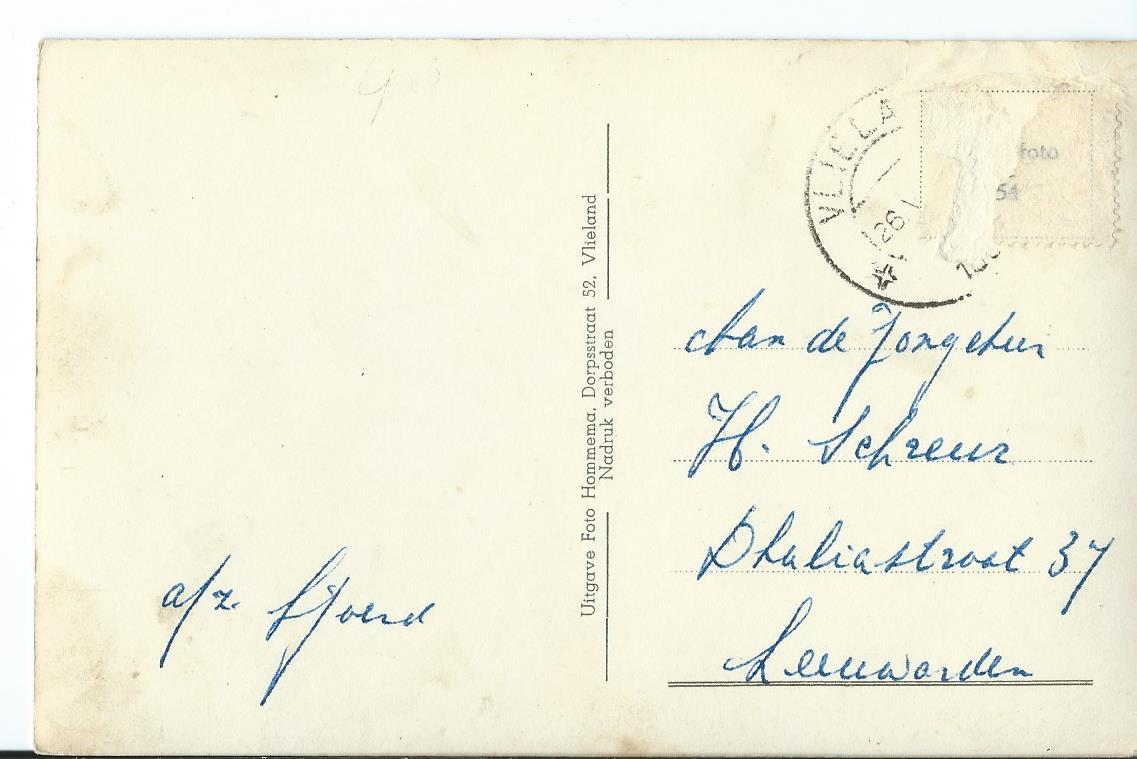 VLIELA
26 1
foto
54
Uitgave Foto Hommema, Dorpsstraat 52, Vlieland
Nadruk verboden
Aan de Jongeheer
H. Schreur
Dhaliastraat 37
Leeuwarden
a/z. Sjoerd